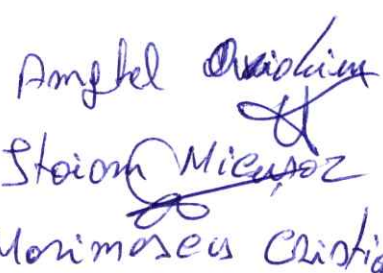 Anghel Ovidiu
Stoian Nicușor
Marinescu Cristia